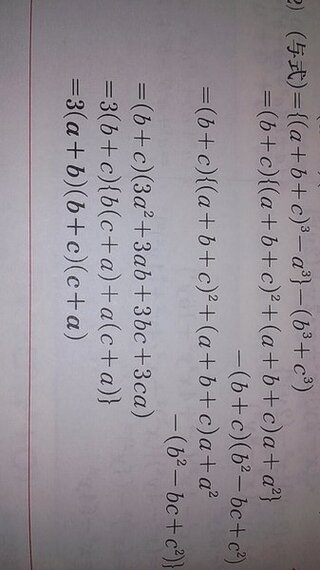 2) (与式)={(a+b+c)³−a³}−(b³+c³)
=(b+c){(a+b+c)²+(a+b+c)a+a²}
−(b+c)(b²−bc+c²)
=(b+c){(a+b+c)²+(a+b+c)a+a²
−(b²−bc+c²)}
=(b+c)(3a²+3ab+3bc+3ca)
=3(b+c){b(c+a)+a(c+a)}
=3(a+b)(b+c)(c+a)